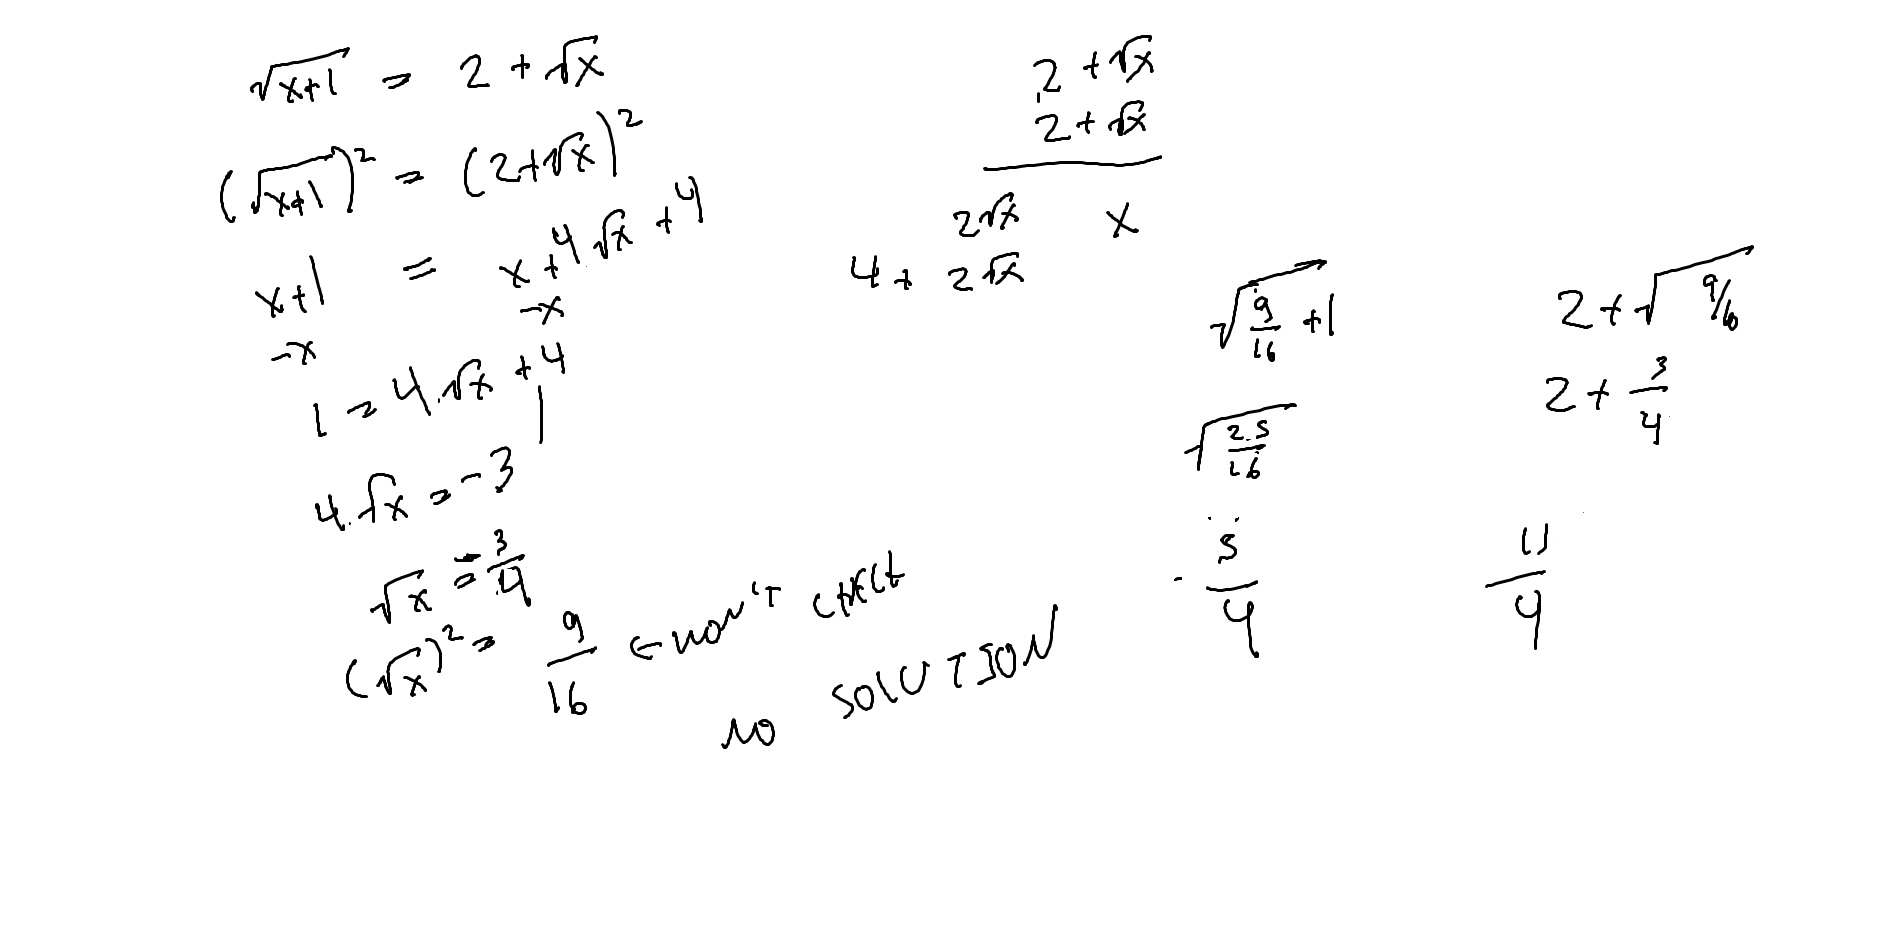 √x+1 = 2 + √x
(√x+1)² = (2+√x)²
x+1 = x+4.√x+4
-x -x
1 = 4.√x+4
4.√x = -3
√x = -3/4
(√x)² = 9/16 ← WON'T CHECK
NO SOLUTION
2 + √x
2 + √x
2√x x
4 + 2√x
√9/16 +1
√25/16
5/4
2 + √9/16
2 + 3/4
11/4